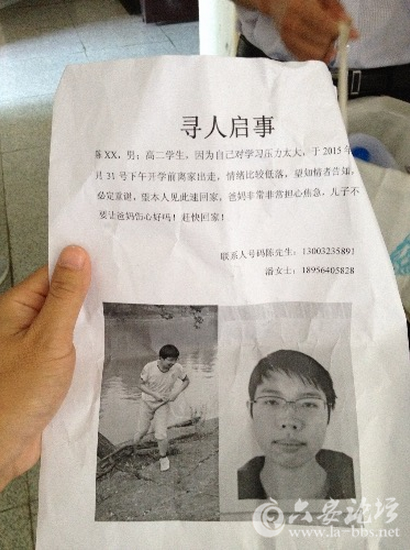 寻人启事
陈XX，男；高二学生，因为自己对学习压力太大，于 2015 年
月 31 号下午开学前离家出走，情绪比较低落，望知情者告知，
必定重谢，望本人见此速回家，爸妈非常非常担心焦急，儿子不
要让爸妈伤心好吗！赶快回家！
联系人号码陈先生：13003235891
潘女士：18956405828
六安论坛
www.la-bbs.net